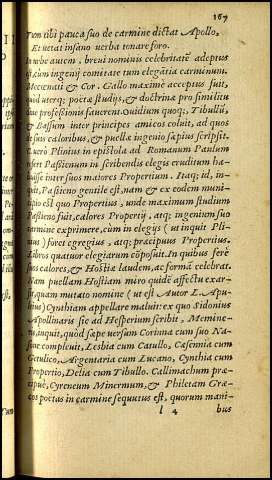 167
Tum tibi pauca suo de carmine dictat Apollo,
Et uetat insano uerba tonare foro.
In urbe autem, breui nominis celebritatē adeptus
est, cum ingenij comitate tum elegātia carminum.
Mecœnati & Cor. Gallo maximè acceptus fuit,
quòd uterq; poëtæ studijs, & doctrina pro similitu
dine professionis fauerent. Ouidium quoq;, Tibullū,
& Bassum inter principes amicos coluit, ad quos
& suos caloribus, & puella ingenio sæpius scripsit.
C. uerò Plinius in epistola ad Romanum Paulum
refert Passienum in scribendis elegis eruditum ha-
buisse inter suos maiores Propertium. Itaq; id, in-
quit, Passieno gentile est, nam & ex eodem muni-
cipio est quo Propertius, unde maximum studium
Passieno fuit, calores Propertij, atq; ingenium suo
carmine exprimere, cum in elegijs (ut inquit Pli-
nius) foret egregius, atq; præcipuus Propertius.
Libros quatuor elegiarum cōposuit. In quibus ferè
suos calores, & Hostiæ laudem, ac formā celebrat.
Nam puellam Hostiam miro quidē affectu exar-
sit, quam mutato nomine (ut est Autor L. Apu-
leius) Cynthiam appellare maluit: ex quo Sidonius
Apollinaris sic ad Hesperium scribit, Memine-
ris, inquit, quòd sæpe uersum Corinna cum suo Na-
sone compleuit, Lesbia cum Catullo, Cæsennia cum
Getulico, Argentaria cum Lucano, Cynthia cum
Propertio, Delia cum Tibullo. Callimachum præ-
cipuè, Cyreneum Mimermum, & Philetam Græ-
cos poëtas in carmine sequutus est, quorum mani-
l 4 bus